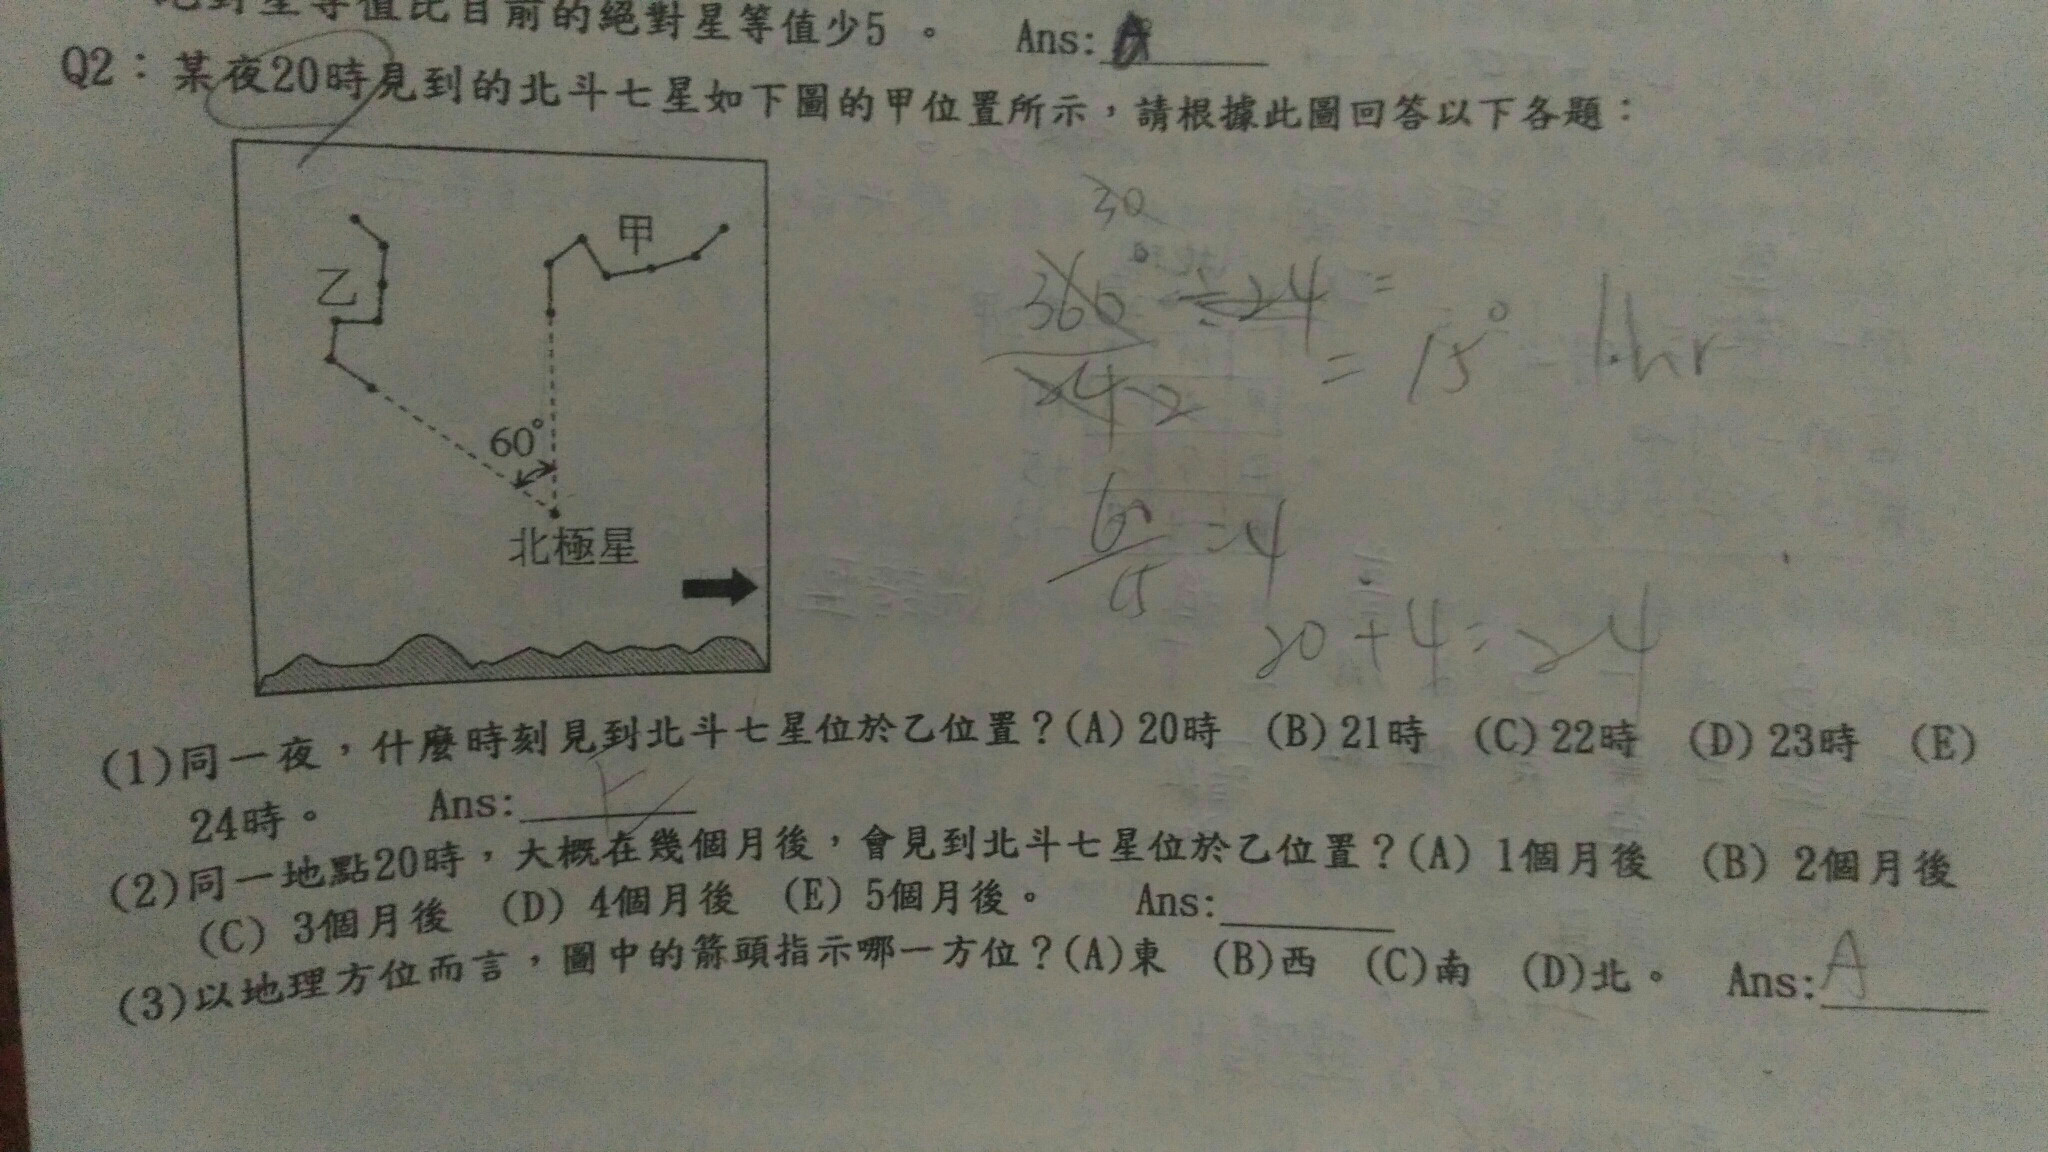 絕對星等值比目前的絕對星等值少5 。 Ans:
Q2：某夜20時見到的北斗七星如下圖的甲位置所示，請根據此圖回答以下各題：
甲
乙
60°
北極星
30
360° ÷ 24 =
24 2
= 15° 1hr
60
15
= 4
20 + 4 = 24
(1)同一夜，什麼時刻見到北斗七星位於乙位置？(A) 20時 (B) 21時 (C) 22時 (D) 23時 (E)
24時。 Ans:
(2)同一地點20時，大概在幾個月後，會見到北斗七星位於乙位置？(A) 1個月後 (B) 2個月後
(C) 3個月後 (D) 4個月後 (E) 5個月後。 Ans:
(3)以地理方位而言，圖中的箭頭指示哪一方位？(A)東 (B)西 (C)南 (D)北。 Ans: A